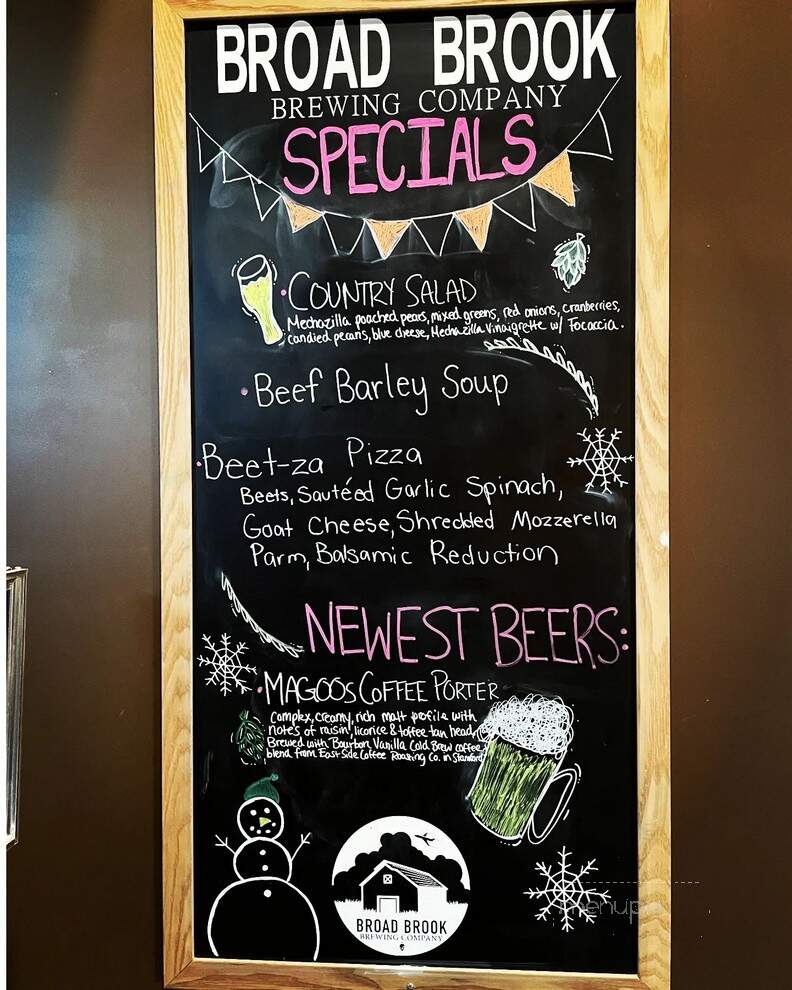 BROAD BROOK
BREWING COMPANY
SPECIALS
• COUNTRY SALAD
Mechazilla poached pears, mixed greens, red onions, cranberries,
candied pecans, blue cheese, Mechazilla Vinaigrette w/ Focaccia.
• Beef Barley Soup
• Beet-za Pizza
Beets, Sautéed Garlic Spinach,
Goat Cheese, Shredded Mozzerella
Parm, Balsamic Reduction
NEWEST BEERS:
• MAGOOS COFFEE PORTER
Complex, creamy, rich malt profile with
notes of raisin, licorice & toffee tan head,
Brewed with Bourbon Vanilla Cold Brew coffee
blend from East Side Coffee Roasting Co. in Stamford
BROAD BROOK
BREWING COMPANY
menupix